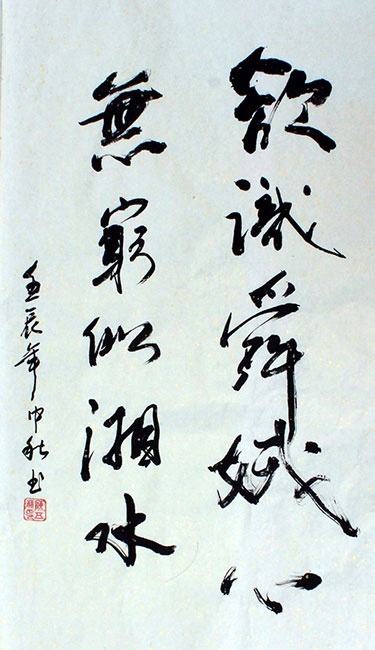 欲識舜娥心
無窮似湘水
壬辰年中秋书